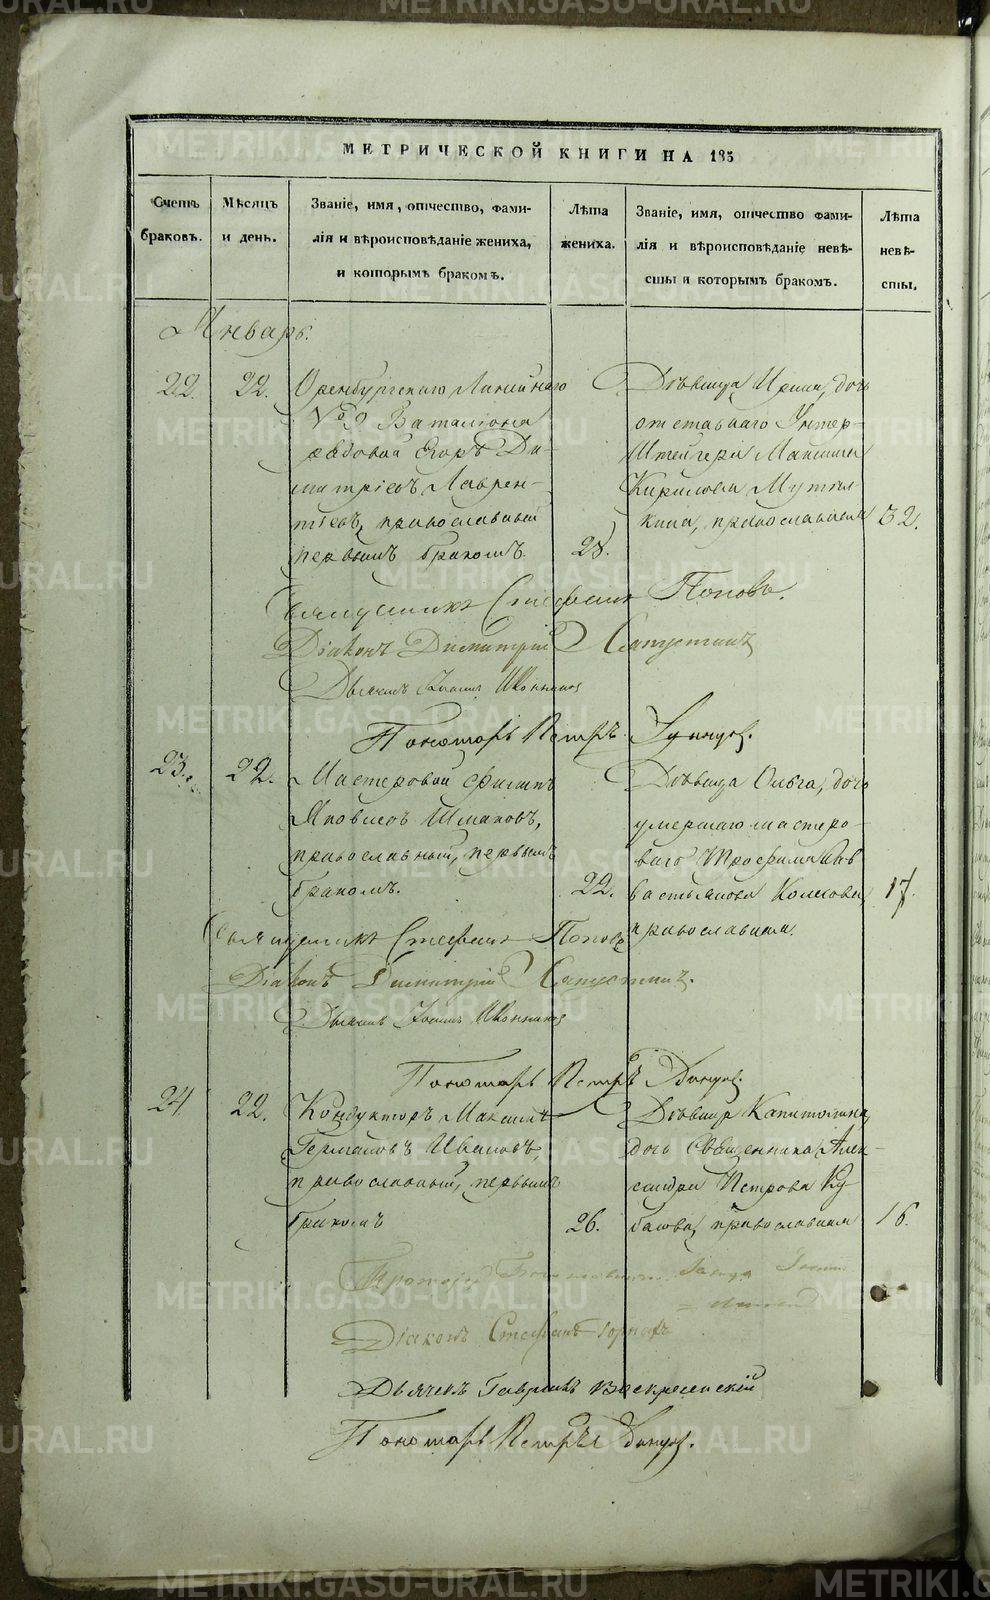 МЕТРИЧЕСКОЙ КНИГИ НА 185
Счетъ браковъ.
Мѣсяцъ и день.
Званіе, имя, отчество, фами-
лія и вѣроисповѣданіе жениха,
и которымъ бракомъ.
Лѣта
жениха.
Званіе, имя, отчество фами-
лія и вѣроисповѣданіе невѣ-
сты и которымъ бракомъ.
Лѣта
невѣ-
сты.
Январь.
22. 22.
Оренбургскаго Линейнаго
№ 3 Баталіона
рядовой Егоръ Ди-
митріевъ Лаврен-
тіевъ, православный
первымъ бракомъ.
28.
Дѣвица Ирина, дочь
отставнаго Унтер-
Штейгера Максима
Кирилова
кина, православная
32.
Священникъ Стефанъ Поповъ.
Діаконъ Димитрій Сапустинъ
Дьячекъ Иконников
Пономарь Петръ
23. 22.
Мастеровой Филипъ
Яковлевъ Шмаковъ,
православный, первымъ
бракомъ.
22.
Дѣвица Ольга, дочь
умершаго мастеро-
ваго Трофима Сав
вастьянова
православная.
17.
Священникъ Стефанъ Поповъ
Діаконъ Димитрій Сапустинъ.
Дьячекъ Иконников
Пономарь Петръ
24. 22.
Кондукторъ Максимъ
Германовъ Ивановъ,
православный, первымъ
бракомъ
26.
Дѣвица Капитолина,
дочь Священника Алек-
сандра Петрова Ку
басова, православная
16.
Протоіерей
Діаконъ Стефанъ
Дьячекъ Гавріилъ Воскресенскій
Пономарь Петръ
METRIKI.GASO-URAL.RU